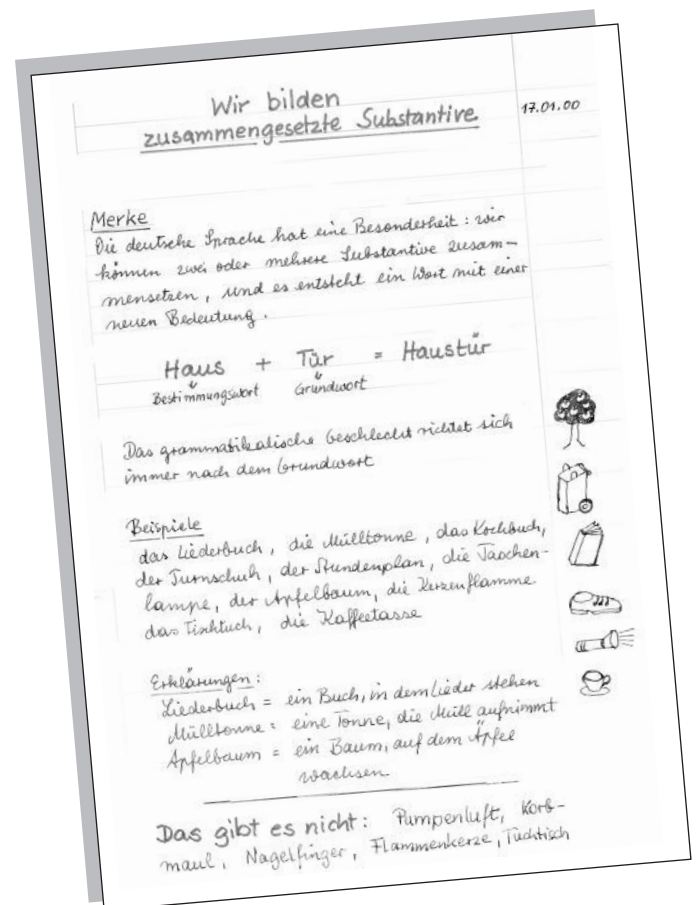 Wir bilden
zusammengesetzte Substantive
17.01.00
Merke
Die deutsche Sprache hat eine Besonderheit: wir
können zwei oder mehrere Substantive zusam-
mensetzen, und es entsteht ein Wort mit einer
neuen Bedeutung.
Haus + Tür = Haustür
Bestimmungswort Grundwort
Das grammatikalische Geschlecht richtet sich
immer nach dem Grundwort
Beispiele
das Liederbuch, die Mülltonne, das Kochbuch,
der Turnschuh, der Stundenplan, die Taschen-
lampe, der Apfelbaum, die Kerzenflamme
das Tischtuch, die Kaffeetasse
Erklärungen:
Liederbuch = ein Buch, in dem Lieder stehen
Mülltonne = eine Tonne, die Müll aufnimmt
Apfelbaum = ein Baum, auf dem Äpfel
wachsen
Das gibt es nicht: Pumpenluft, Korb-
maul, Nagelfinger, Flammenkerze, Tuchtisch